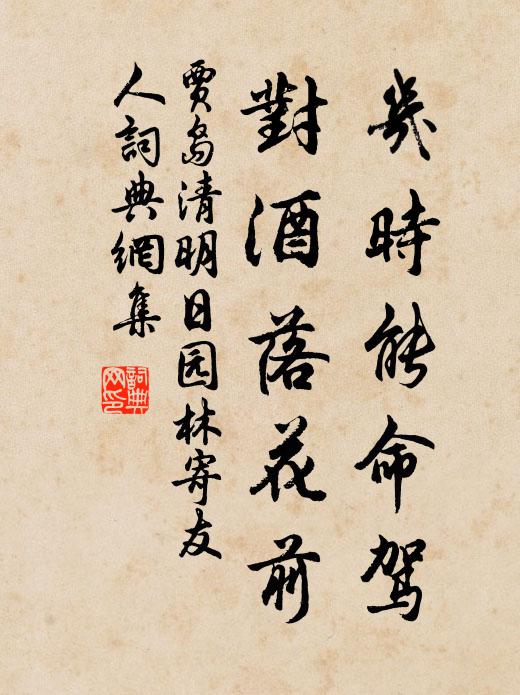 幾時能命駕
對酒落花前
賈島清明日园林寄友
人詞典網集
詞典網印